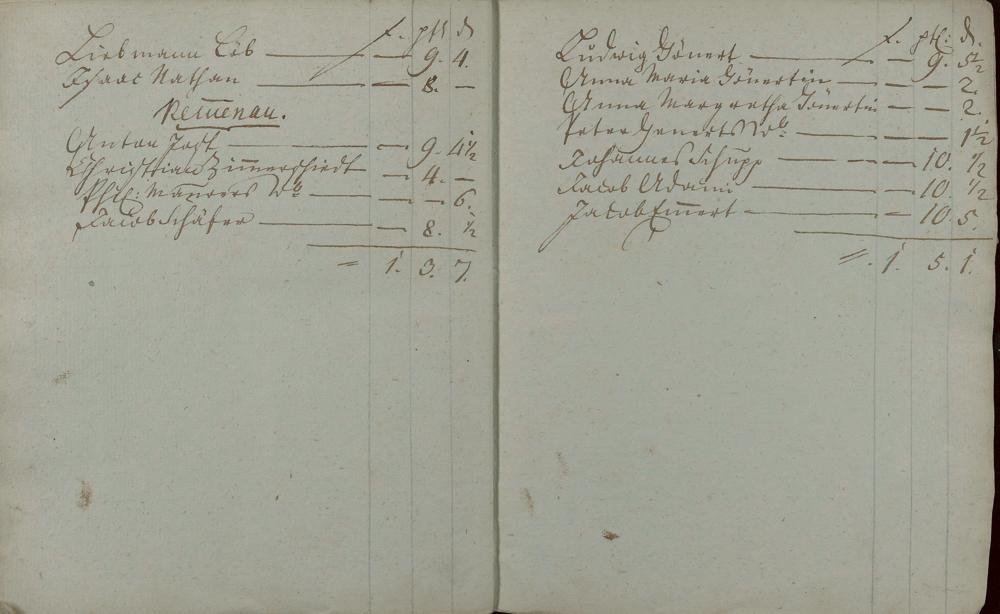 f. ptt. d
Liebmann Löb — — 9. 4.
Isaac Nathan — — 8. —
Kem̄enau.
Anton Jost — — 9. 4½
Christian Zim̄erschiedt — 4. —
Phil: Maurers W — — — 6.
Jacob Schäfer — — 8. ½
= 1. 3. 7.
f. ptt: d.
Ludwig Gönert — — 9. 5½
Anna Maria Gönertin — — — 2.
Anna Margretha Gönertin — — 2.
Peter Generts W — — — 1½
Johannes Schupp — — 10. ½
Jacob Adami — — 10. ½
Jacob Em̄ert — — 10. 5.
=. 1. 5. 1.